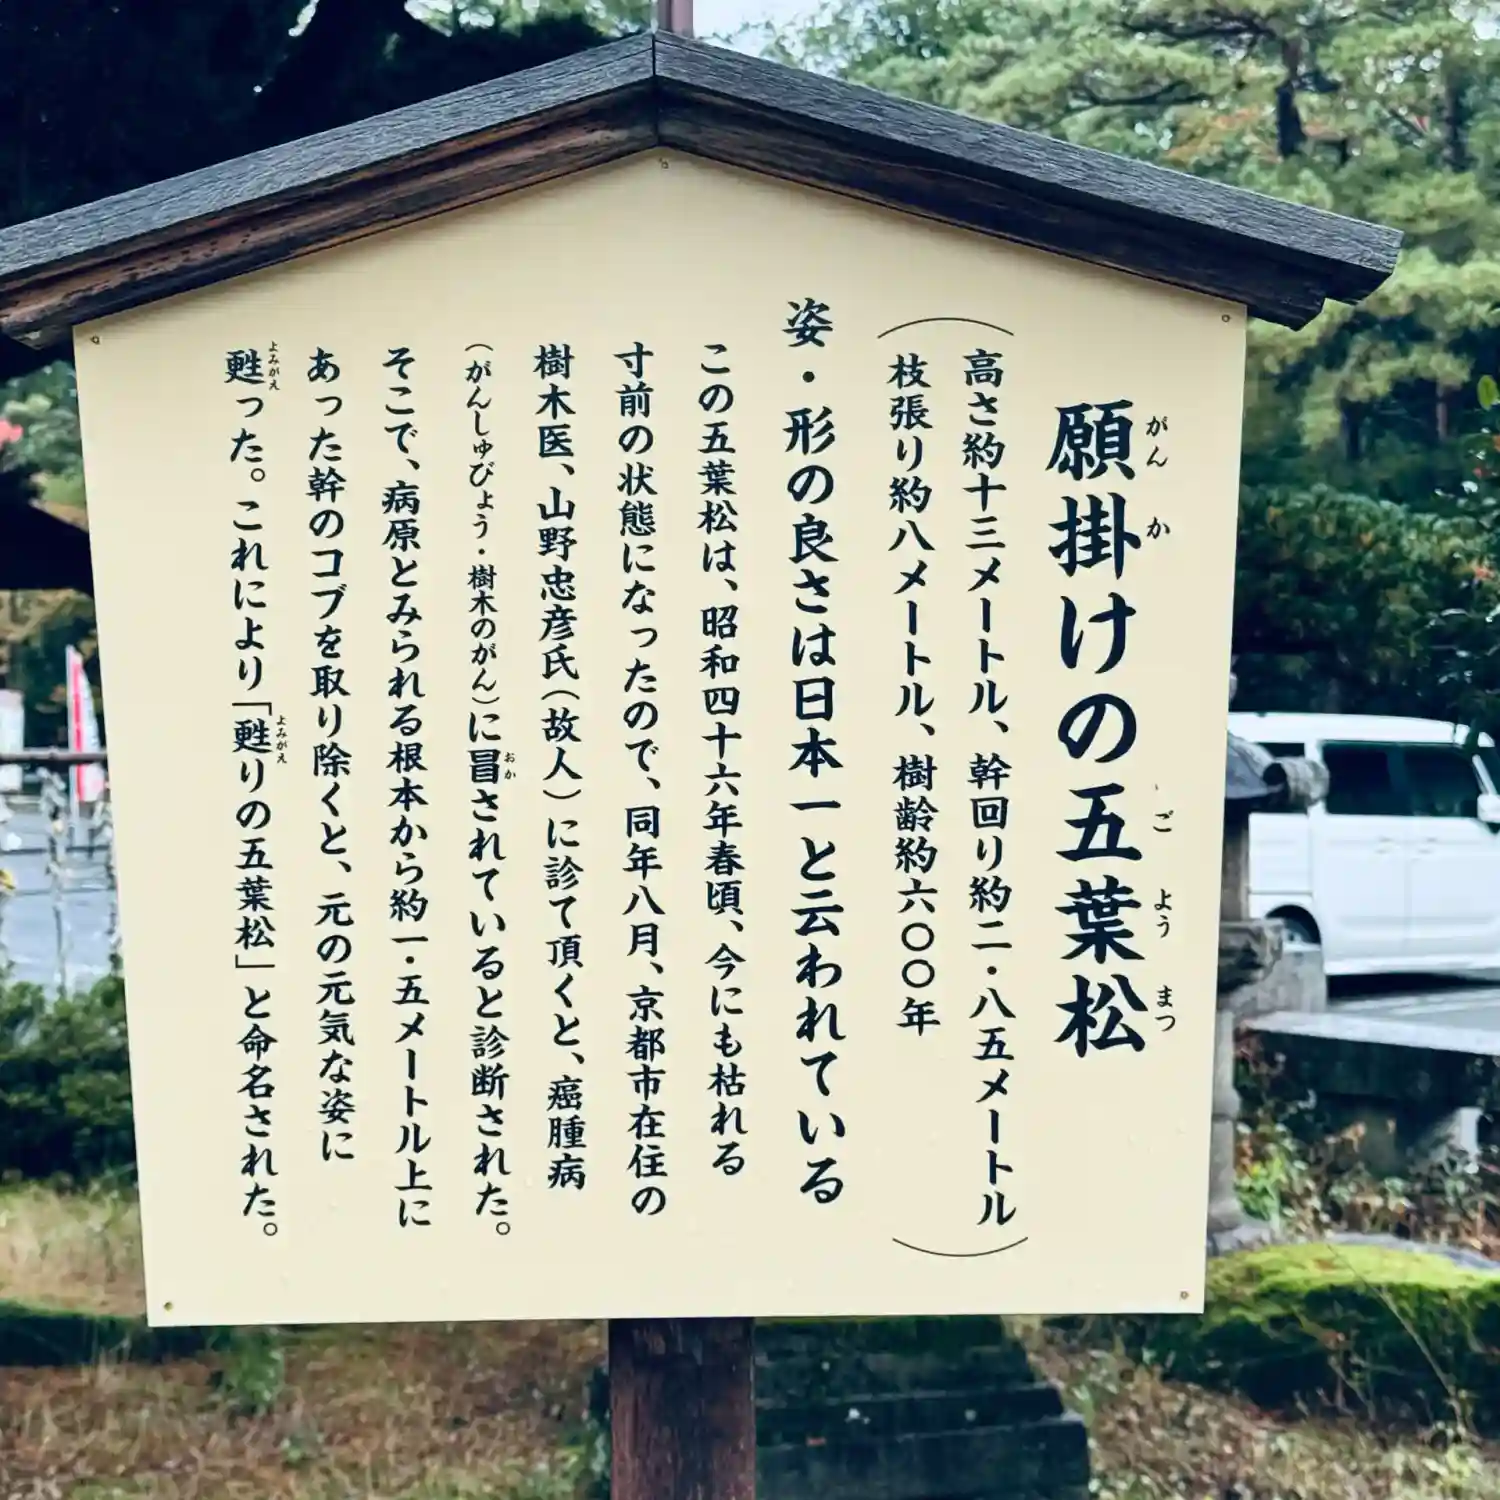 願掛けの五葉松
がんか ごようまつ
高さ約十三メートル、幹回り約二・八五メートル
枝張り約八メートル、樹齢約六〇〇年
姿・形の良さは日本一と云われている
この五葉松は、昭和四十六年春頃、今にも枯れる
寸前の状態になったので、同年八月、京都市在住の
樹木医、山野忠彦氏（故人）に診て頂くと、癌腫病
（がんしゅびょう・樹木のがん）に冒されていると診断された。
おか
そこで、病原とみられる根本から約一・五メートル上に
あった幹のコブを取り除くと、元の元気な姿に
甦った。これにより「甦りの五葉松」と命名された。
よみがえ よみがえ